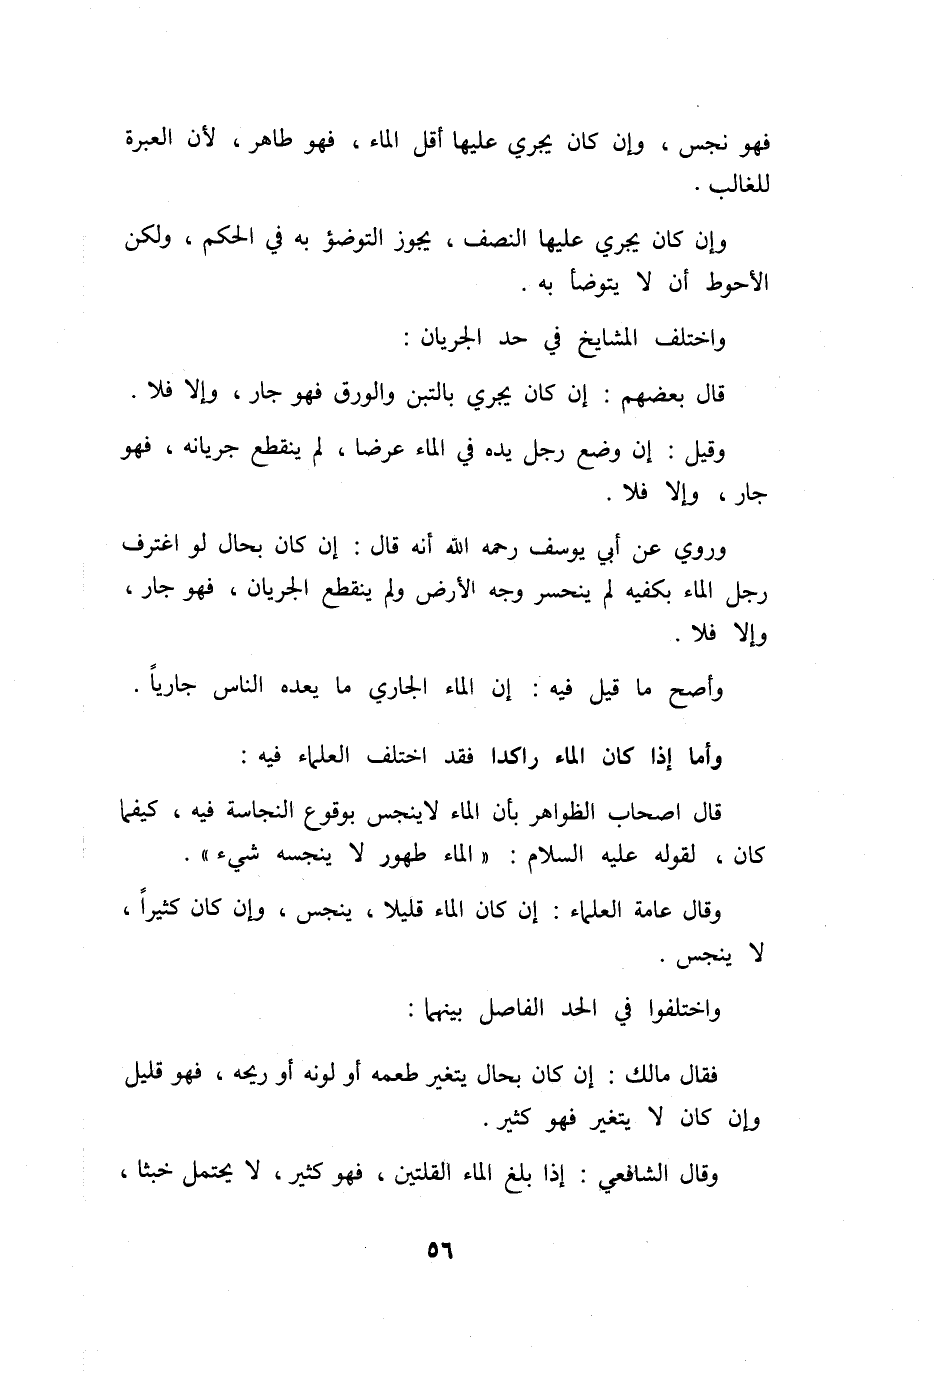 فهو نجس ، وإن كان يجري عليها أقل الماء ، فهو طاهر ، لأن العبرة
للغالب .
وإن كان يجري عليها النصف ، يجوز التوضؤ به في الحكم ، ولكن
الأحوط أن لا يتوضأ به .
واختلف المشايخ في حد الجريان :
قال بعضهم : إن كان يجري بالتبن والورق فهو جار ، وإلا فلا .
وقيل : إن وضع رجل يده في الماء عرضا ، لم ينقطع جريانه ، فهو
جار ، وإلا فلا .
وروي عن أبي يوسف رحمه الله أنه قال : إن كان بحال لو اغترف
رجل الماء بكفيه لم ينحسر وجه الأرض ولم ينقطع الجريان ، فهو جار ،
وإلا فلا .
وأصح ما قيل فيه : إن الماء الجاري ما يعده الناس جارياً .
وأما إذا كان الماء راكدا فقد اختلف العلماء فيه :
قال اصحاب الظواهر بأن الماء لاينجس بوقوع النجاسة فيه ، كيفما
كان ، لقوله عليه السلام : « الماء طهور لا ينجسه شيء» .
وقال عامة العلماء : إن كان الماء قليلا ، ينجس ، وإن كان كثيراً ،
لا ينجس .
واختلفوا في الحد الفاصل بينهما :
فقال مالك : إن كان بحال يتغير طعمه أو لونه أو ريحه ، فهو قليل
وإن كان لا يتغير فهو كثير .
وقال الشافعي : إذا بلغ الماء القلتين ، فهو كثير ، لا يحتمل خبثا ،
٥٦